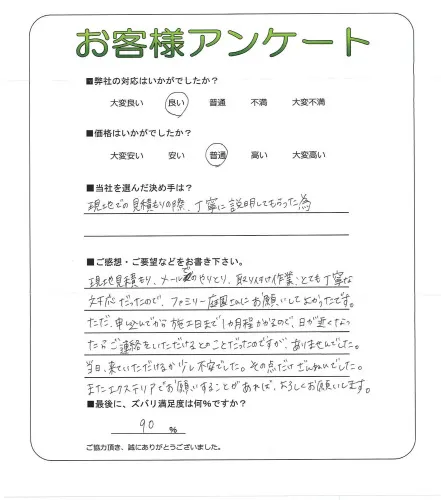 お客様アンケート
■弊社の対応はいかがでしたか?
大変良い 良い 普通 不満 大変不満
■価格はいかがでしたか?
大変安い 安い 普通 高い 大変高い
■当社を選んだ決め手は?
現地での見積もりの際、丁寧に説明してもらった為
■ご感想・ご要望などをお書き下さい。
現地見積もり、メールでのやりとり、取り付け作業、とても丁寧な
対応だったので、ファミリー庭園さんにお願いしてよかったです。
ただ、申込んでから施工日まで1カ月程かかるので、日が近くなっ
たらご連絡をいただけるとのことだったのですが、ありませんでした。
当日、来ていただけるか少し不安でした。その点だけざんねんでした。
またエクステリアでお願いすることがあれば、よろしくお願いします。
■最後に、ズバリ満足度は何%ですか?
90 %
ご協力頂き、誠にありがとうございました。